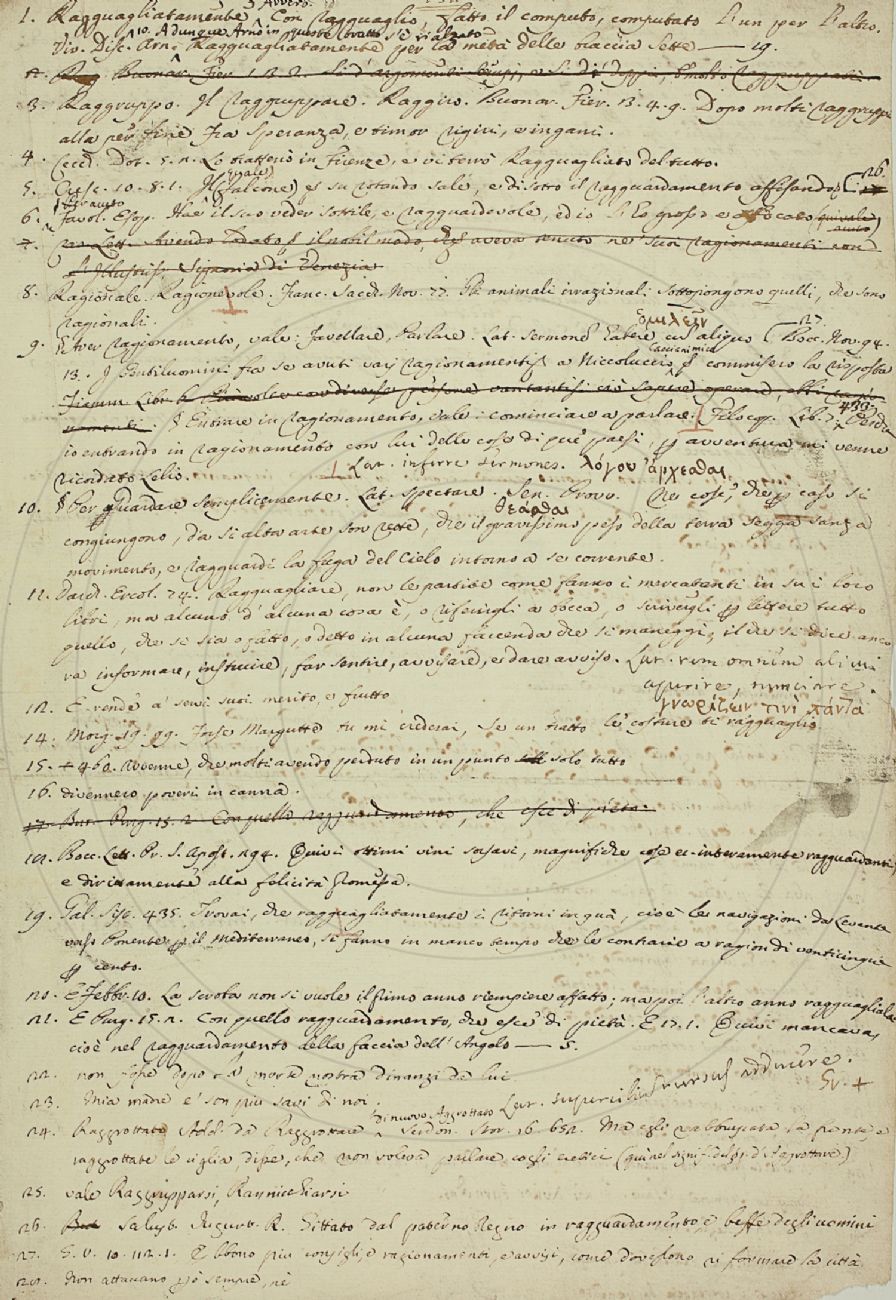 1. Ragguagliatamente. Avverb. Con ragguaglio, Fatto il computo, computato l'un per l'altro.
Viv. Disc. Arn. 10. Adunque Arno in queste tratto si è rialzato Ragguagliatamente per la metà delle braccia sette — 19.
2. Buonar. Fier. 1. 2. 2.
3. Raggruppo. Il raggruppare. Raggiro. Buonar. Fier. 3. 4. 9. Dopo molti raggruppi
alla per fine Fra speranza, e timor rigiri, e inganni.
4. Cecch. Dot. 5. 2. Lo tratterrò in Firenze, e vi terrò Ragguagliato del tutto.
5. Cresc. 10. 8. 1. Il (Falcone) in su rotando sale, e di sotto il ragguardamento affisando 26.
6. Favol. Esop. Hae il suo veder sottile, e ragguardevole, ed io l'ho grosso e
7. Lett. Avendo lodato il nobil modo, aveva tenuto ne' suoi ragionamenti con
l'Illustriss. Signoria di Venezia
8. Ragionale. Ragionevole. Franc. Sacch. Nov. 77. Gli animali irrazionali sottopongono quelli, che sono
ragionali.
9. ragionamento, vale: Favellare, Parlare. Lat. sermonem cum aliquo ὁμιλεῖν 27. Bocc. Nov. 94.
13. I Gentiluomini fra se avuti varj ragionamenti a Niccoluccio Caccianimico commisero la risposta
Fiamm. Libr.
Entrare in ragionamento, vale: cominciare a parlare. Filocop. Lib. 7. 439.
io entrando in ragionamento con lui delle cose di quei paesi, per avventura mi venne
ricordato Lelio. Lat. inferre sermones. λόγου ἄρχεσθαι
10. Per guardare semplicemente. Lat. spectare. θεᾶσθαι Sen. Provv. Nè cose, che per caso si
congiungono, da sì alta arte son rette, che il gravissimo peso della terra segga sanza
movimento, e ragguardi la fuga del Cielo intorno a se corrente.
11. Varch. Ercol. 74. Ragguagliare, non le partite come fanno i mercatanti in su i loro
libri, ma alcuno d'alcuna cosa è, o riferirgli a bocca, o scrivergli per lettere tutto
quello, che si sia o fatto, o detto in alcuna faccenda che si maneggi, il che si dice anco
ra informare, instruire, far sentire, avvisare, e dare avviso. Lat. rem omnem alicui
aperire, nunciare.
γνωρίζειν τινὶ πάντα
12. E rende a' servi suoi merito, e frutto
14. Morg. 19. 99. Forse Margutte tu mi crederai, Se un tratto le costure ti ragguaglio.
15. + 460. Avvenne, che molti avendo perduto in un punto solo tutto
16. divennero poveri in canna.
17. But. Purg. 15. 2. Con quello ragguardamento, che esce di pietà.
18. Bocc. Lett. Pr. S. Apost. 294. Quivi ottimi vini soavi, magnifiche cose ec. interamente ragguardanti,
e dirittamente alla felicità promessa.
19. Gal. Sist. 435. Trovai, che ragguagliatamente i ritorni in quà, cioè le navigazioni da Levante
verso Ponente per il Mediterraneo, si fanno in manco tempo che le contrarie a ragion di venticinque
per cento.
20. E Febbr. 10. La scrofa non si vuole il primo anno riempiere affatto; ma poi l'altro anno ragguagliala.
21. E Purg. 15. 2. Con quello ragguardamento, che esce di pietà. E 17. 1. Quivi mancava,
cioè nel ragguardamento della faccia dell'Angolo — 5.
22. non fosse dopo la morte nostra dinanzi da lui
23. mia madre e son più savi di noi.
24. Raggrottato Add. da Raggrottare di nuovo Aggrottato Lat. supercilium rursus adducere. Sv. +
Serdon. Stor. 16. 652. Ma egli
raggrottate le ciglia, disse, che non voleva parlare cogli eretici
25. vale Raggrupparsi, Rannicchiarsi
26. Salust. Jugurt. R. Gittato dal paterno Regno in ragguardamento, e beffe degli uomini
27. G. V. 10. 112. 1. Ebbono più consigli, e ragionamenti, e avvisi, come dovessono riformare la città.
28. Non attavano però sempre, nè